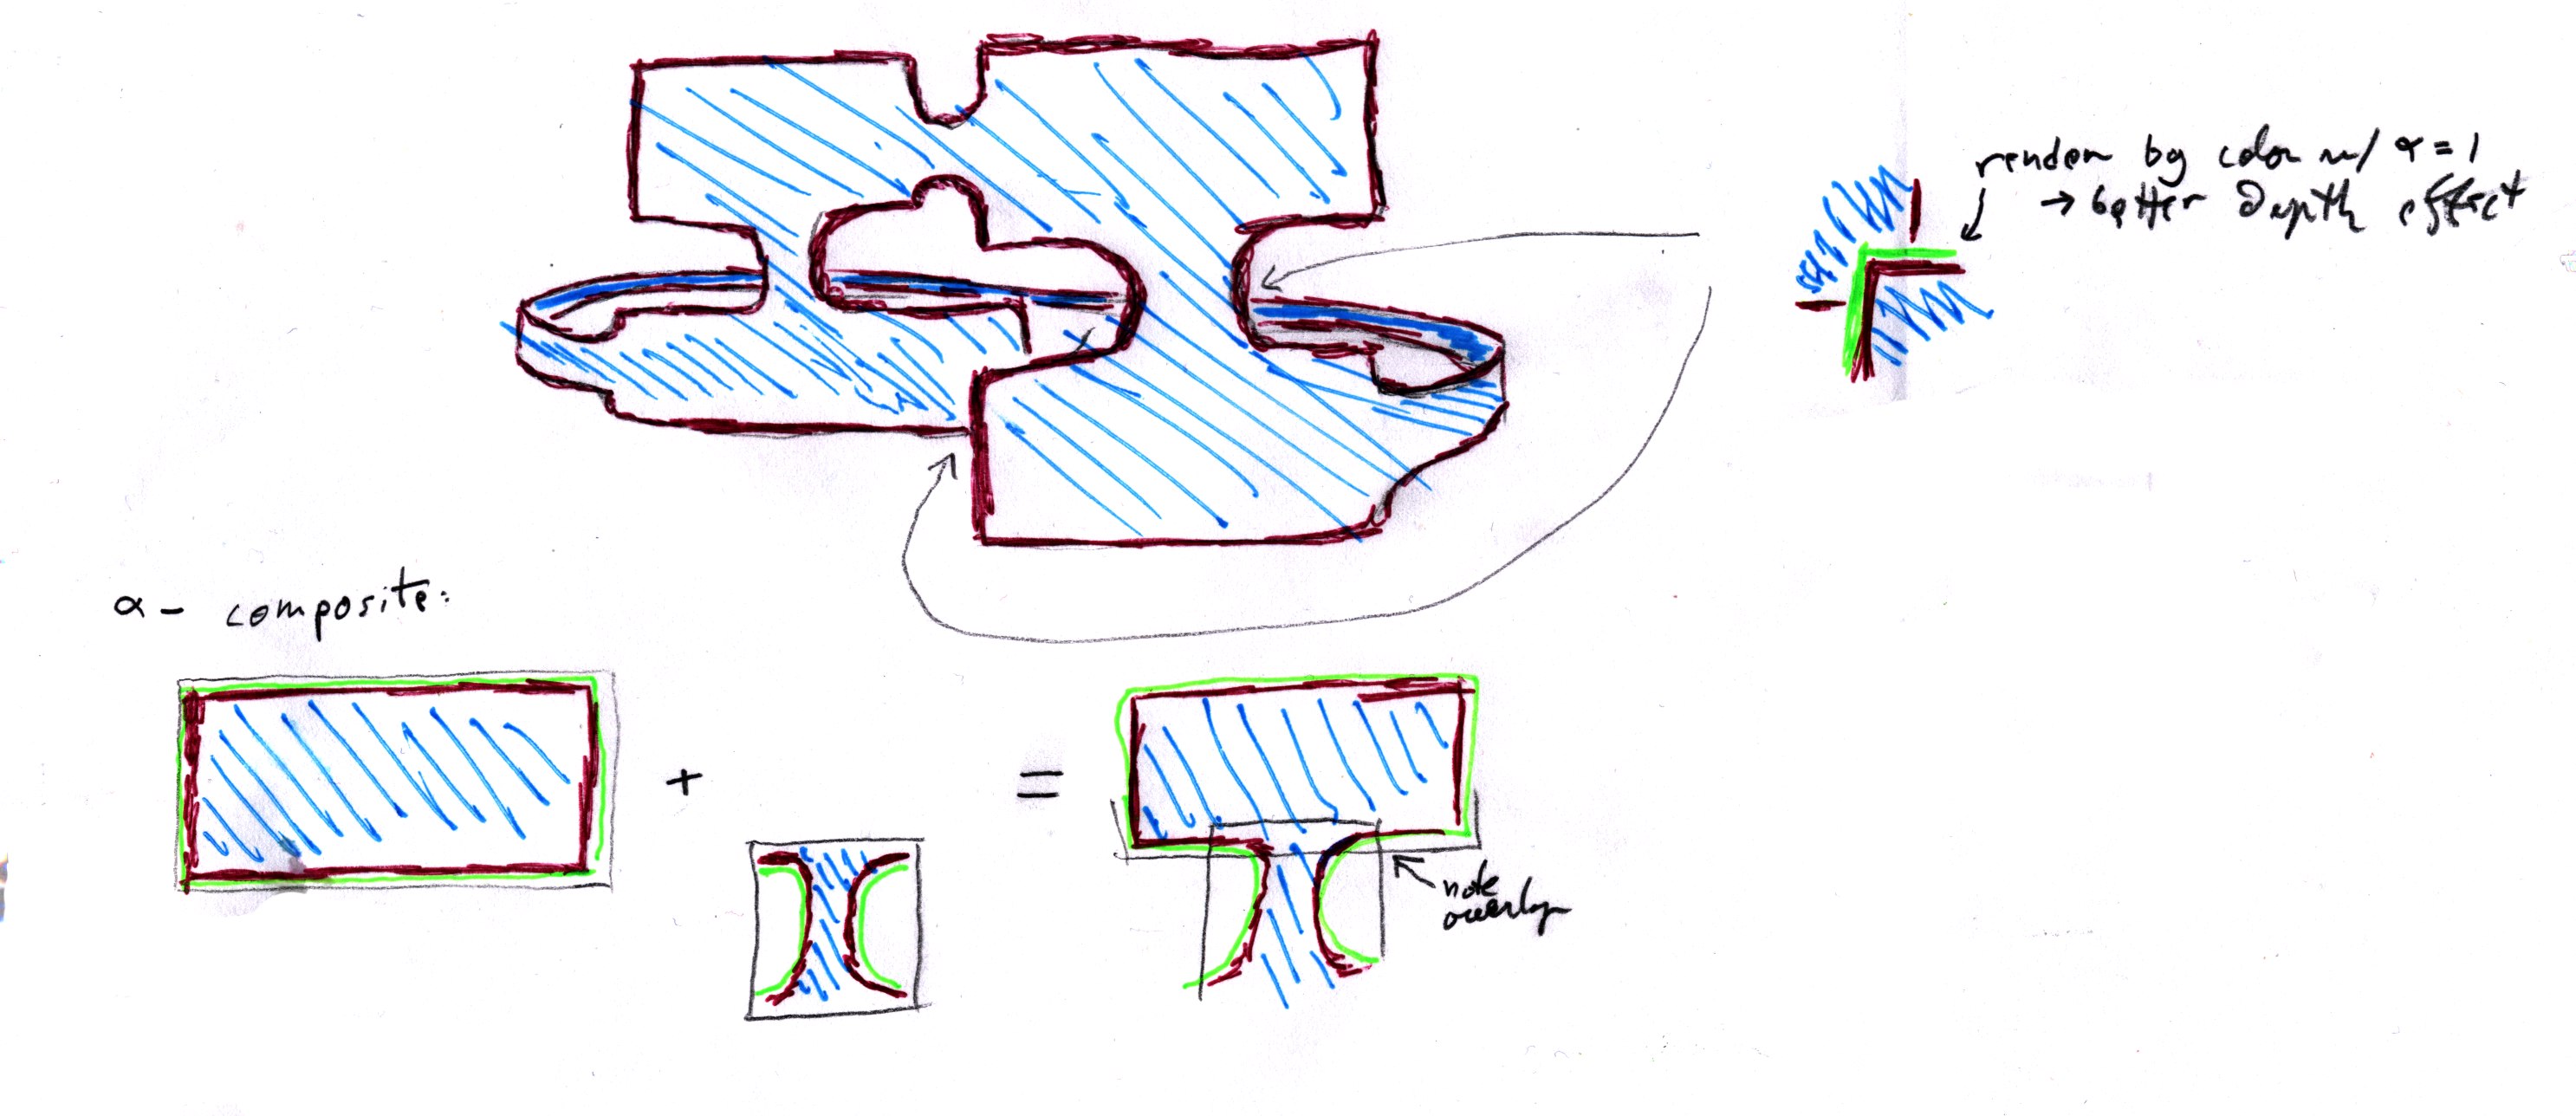 render bg color w/ α = 1
→ better depth effect
α - composite:
+
=
note
overlap